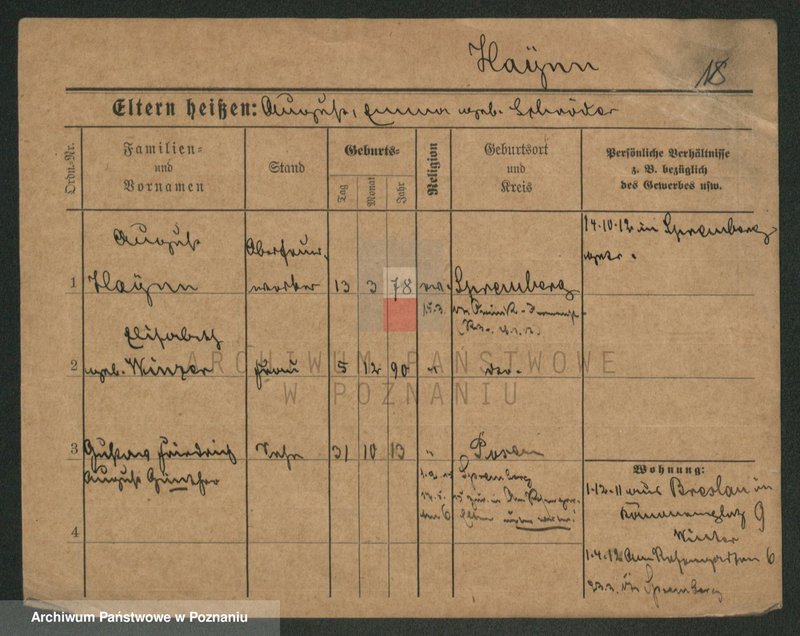 Haÿnn
18
Eltern heißen: August, Emma geb. Schröder
Ordn.-Nr.
Familien- und Vornamen
Stand
Geburts-
Tag
Monat
Jahr
Religion
Geburtsort und Kreis
Persönliche Verhältnisse z. B. bezüglich des Gewerbes usw.
1
August
Haÿnn
13
3
78
Spremberg
14.10.12 in Spremberg
getr.
2
Elisabeth
geb. Winzer
Frau
5
12
90
3
Gustav Friedrich
August Günther
Sohn
31
10
13
"
Posen
Spremberg
4
Wohnung:
1.12.11 aus Breslau in
9
Winter
1.4.12 Am Rosengarten 6
Spremberg
ARCHIWUM PAŃSTWOWE
W POZNANIU
Archiwum Państwowe w Poznaniu